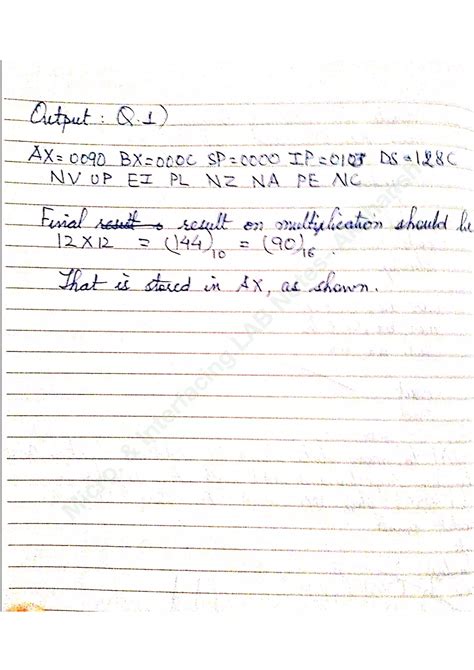 Output : Q.1)
AX=0090 BX=000C SP=0000 IP=0103 DS=128C
NV UP EI PL NZ NA PE NC
Final result o result on multiplication should be
12X12 = (144)10 = (90)16 .
That is stored in AX, as shown.
Micro. & Interfacing LAB Notes